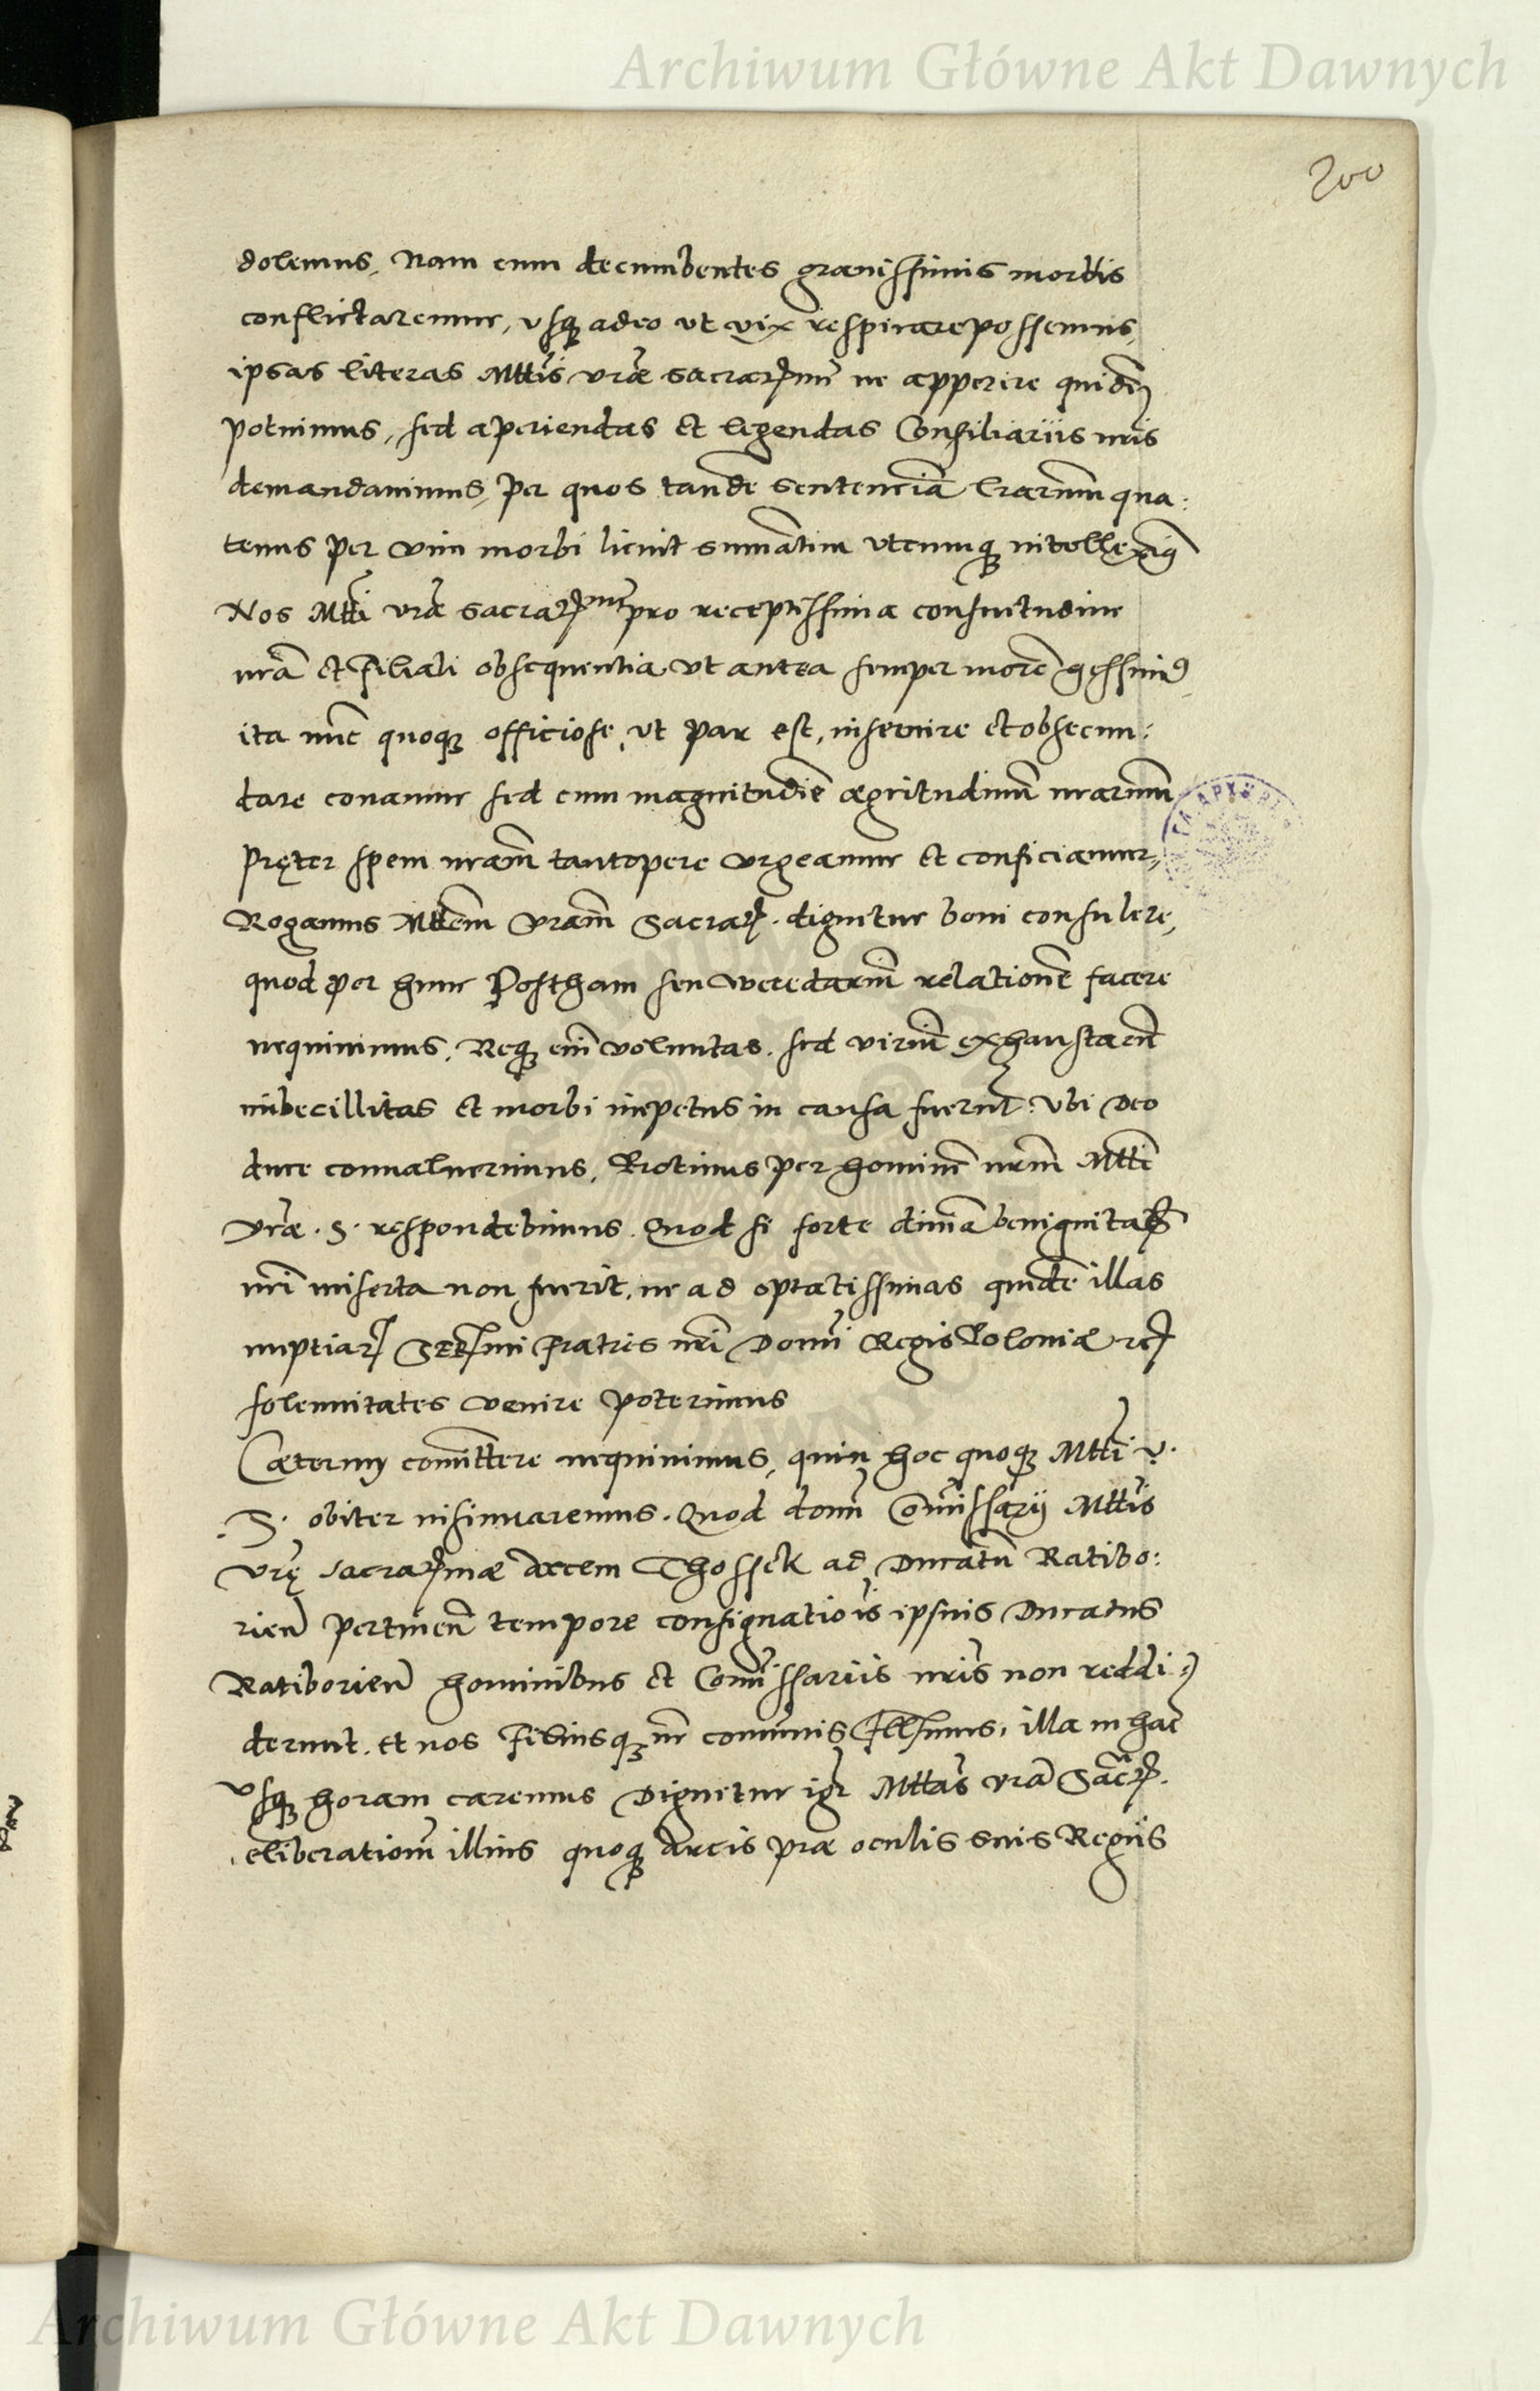 Archiwum Główne Akt Dawnych
200
dolemus, Nam cum decumbentes grauissimis morbis
conflictaremur, vsq3 adeo vt vix respirare possemus,
ipsas literas Mttis vrae sacrar mi ne apperire quidē
potuimus, sed aperiendas et legendas Consiliariis nris
demandauimus, per quos tandē sentenciā lrarum qua:
tenus per vim morbi licuit sumātim vtcumq3
Nos Mtti vrae sacrar pro receptissima consuetudine
nrā et Filiali obsequentia vt antea semper morē gessimus
ita nūc quoq3 officiose, vt par est, inseruire et obsecun:
dare conamur sed cum magnitudiē aegritudinū nrarum
pręter spem nram tantopere vrgeamur et conficiamur,
Rogamus Mttem Vram Sacrar. dignetur boni consulere,
quod per hunc Postham seu weredariū relationē facere
nequiuimus. Neq3 enī voluntas. sed viriū exhaustarū
imbecillitas et morbi impetus in causa fuerūt. Vbi Deo
duce conualuerimus. Protinus per hominē nrm Mtti
Vrae. S. respondebimus. Quod si forte diuina benignitas
nri miserta non fuerit, ne ad optatissimas quidē illas
nuptiar Sermi Fratris nri Domi Regis Poloniae etc
solennitates venire poterimus
Caeterum comittere nequiuimus, quin hoc quoq3 Mtti v.
S. obiter insinuaremus. Quod domi Comissarij Mttis
vrę sacrar mae Arcem Thossek ad Ducatū Ratibo:
rien pertinen tempore consignatiois ipsius Ducatus
Ratiborien hominibus et Comissariis nris non reddi:
derunt. et nos Filiusq3 nr comunis Illmus, illa in hāc
vsq3 horam caremus Dignetur igr Mttas vra Sacr.
eliberationē illius quoq3 Arcis prae oculis suis Regiis
Archiwum Główne Akt Dawnych